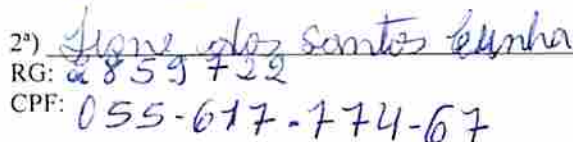 2ª) dos Santos Cunha
RG: 2859722
CPF: 055-617-774-67